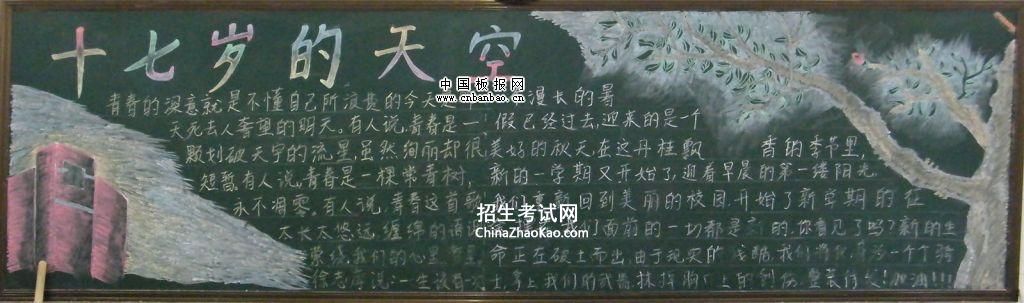 十七岁的天空
中国板报网
www.cnbanbao.cn
青春的深意就是不懂自己所浪费的今天
天死去人奢望的明天。有人说,青春是一
颗划破天宇的流星,虽然绚丽却很
短暂有人说,青春是一棵常青树,
永不凋零。有人说,青春这首歌
太长太悠远,缠绵的
萦绕我们的心里
徐志摩说:一生
漫长的暑
假已经过去,迎来的是一个
美好的秋天在这丹桂飘香的季节里,
新的一学期又开始了,迎着早晨的第一缕阳光
回到美丽的校园开始了新学期的征
我们面前的一切都是新的,你看见了吗?新的生
命正在破土而出,由于现实的残酷,我们将成为一个个骑
士,拿上我们的武器,抹掉胸口上的创伤,整装待发!加油!!!!
招生考试网
ChinaZhaoKao.com